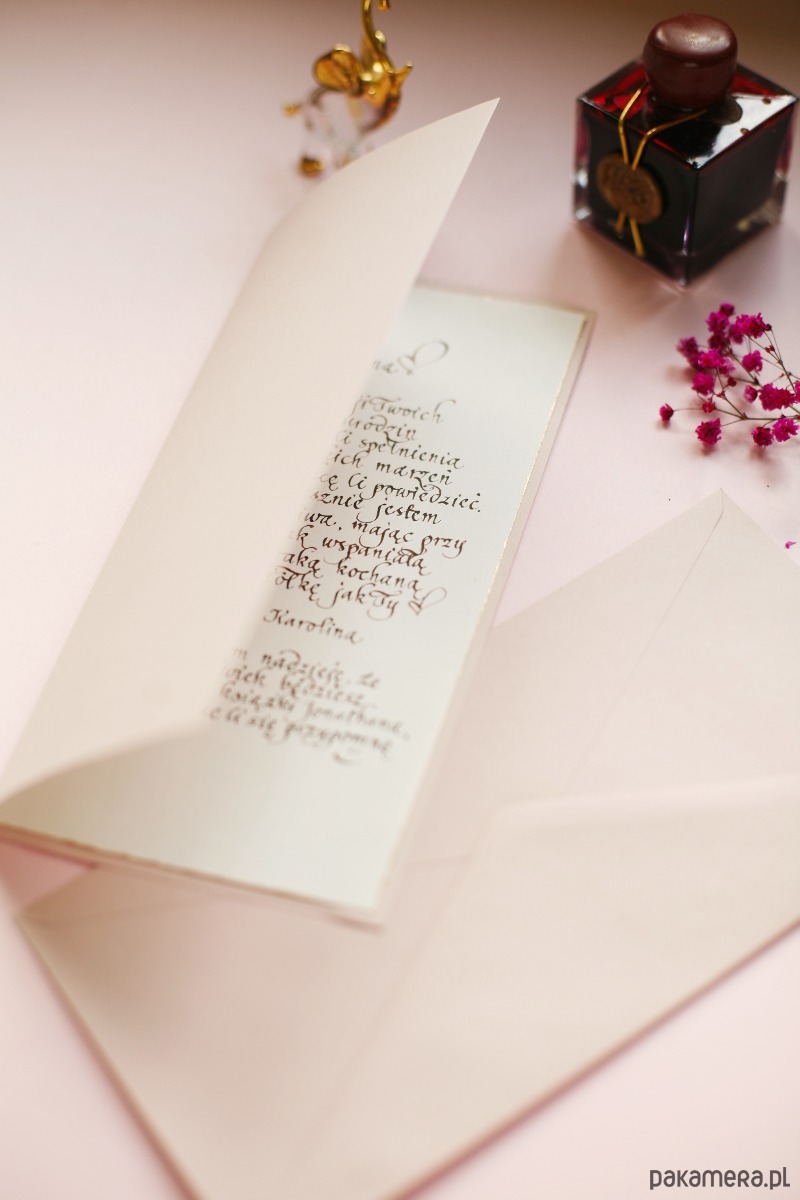 na
ji Twoich
urodzin
i spełnienia
ich marzeń
ę Ci powiedzieć,
sznie jestem
wa, mając przy
k wspaniałą
aką kochaną
ółkę jak Ty
Karolina
m nadzieję, że
będziesz
książki Jonathana,
e Ci się przypomnę
pakamera.pl